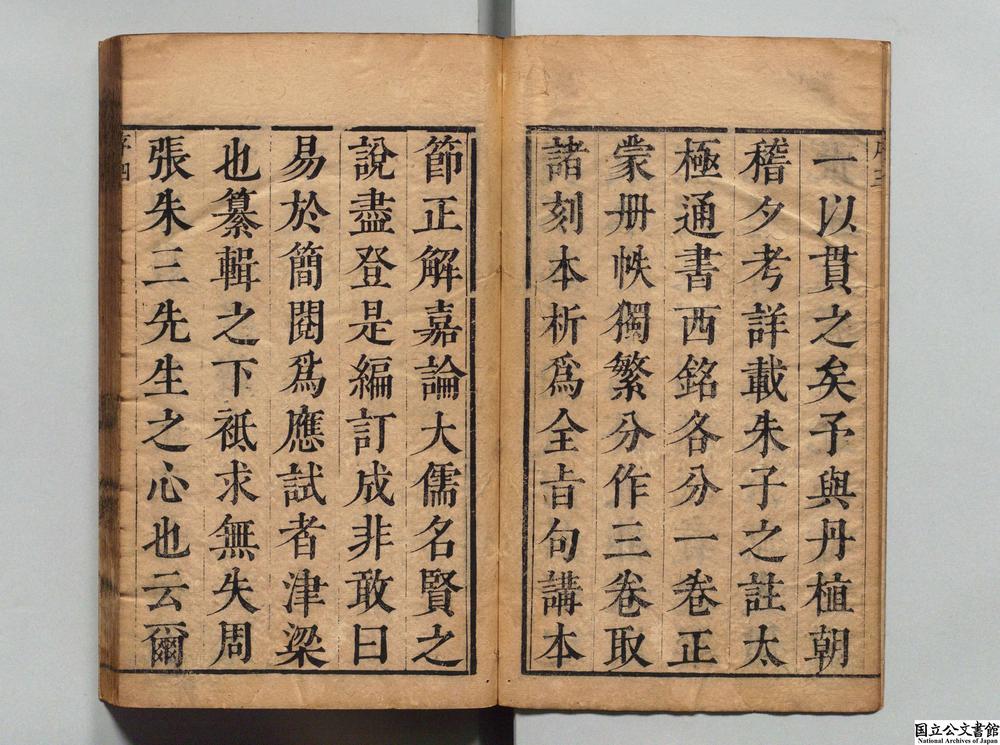 一以貫之矣予與丹植朝
稽夕考詳載朱子之註太
極通書西銘各分一卷正
蒙册帙獨繁分作三卷取
諸刻本析爲全旨句講本
節正解嘉論大儒名賢之
說盡登是編訂成非敢曰
易於簡閱爲應試者津梁
也纂輯之下祇求無失周
張朱三先生之心也云爾
序三
序四
国立公文書館
National Archives of Japan